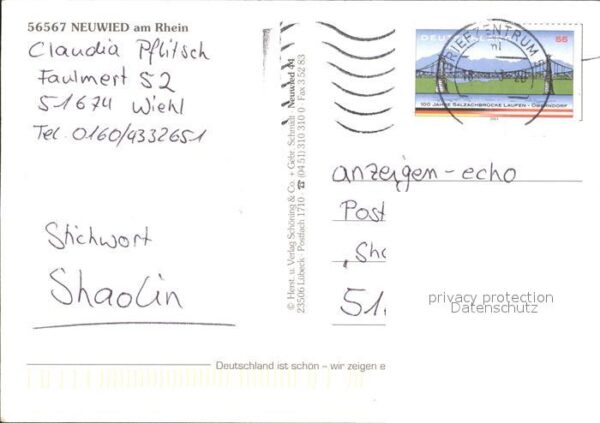 56567 NEUWIED am Rhein
Claudia Pflitsch
Faulmert 52
51674 Wiehl
Tel. 0160/9332651
Stichwort
Shaolin
© Herst. u. Verlag Schöning & Co. + Gebr. Schmidt Neuwied 44
23506 Lübeck · Postfach 1710 · ☎ (04 51) 310 310 0 · Fax 3 52 83
DEUTSCHLAND
55
BRIEFZENTRUM
100 JAHRE SALZACHBRÜCKE LAUFEN - OBERNDORF
anzeigen-echo
Post
"Sho
51
privacy protection
Datenschutz
Deutschland ist schön – wir zeigen e